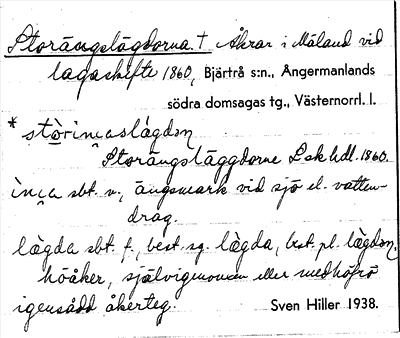 Storängslägdorna. † Åkrar i Mäland vid
lagaskifte 1860, Bjärtrå s:n., Ångermanlands
södra domsagas tg., Västernorrl. l.
* stòrinⁿaslágdɔn
Storängsläggdorne Lsk hdl. 1860.
ìnⁿa sbt. n., ängsmark vid sjö el. vatten-
drag.
lǽgda sbt. f., best. sg. lǽgda, best. pl. lǽgdɔn.
höåker, självigenvuxen eller med höfrö
igensådd åkerteg. Sven Hiller 1938.